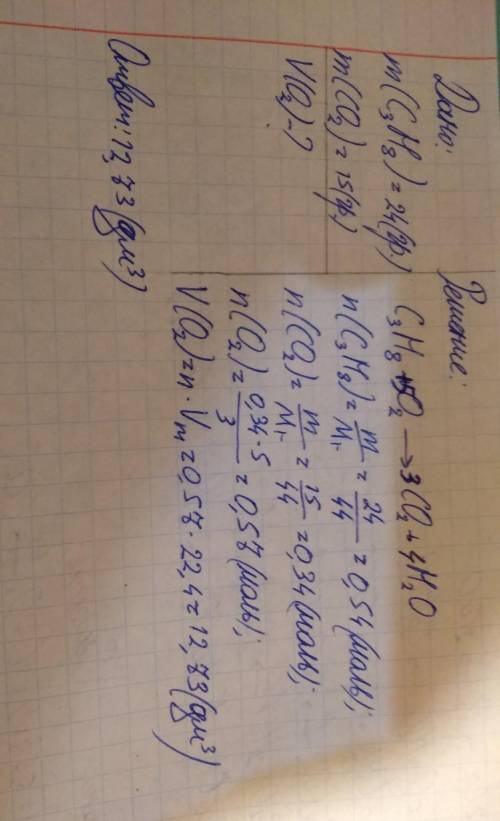 Дано:
m(C₃H₈)=24(гр)
m(CO₂)=15(гр)
V(O₂)-?
Решение:
C₃H₈+5O₂→3CO₂+4H₂O
n(C₃H₈)=m/Mr=24/44=0,54(моль);
n(CO₂)=m/Mr=15/44=0,34(моль);
n(O₂)=0,34·5/3=0,57(моль);
V(O₂)=n·Vm=0,57·22,4=12,73(дм³)
Ответ:12,73(дм³)